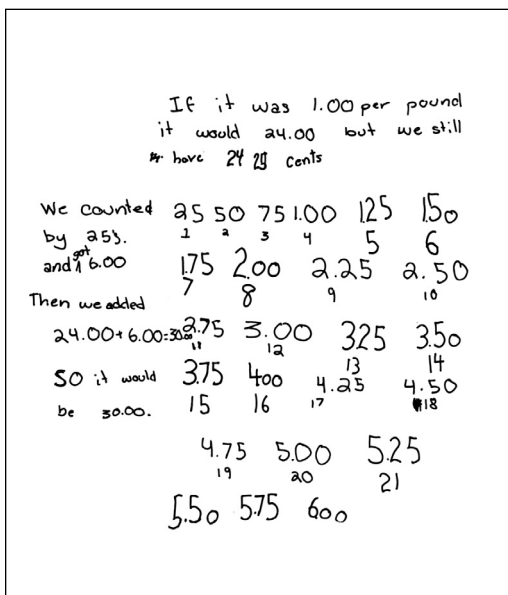 If it was 1.00 per pound
it would 24.00 but we still
have 24 25 cents
We counted
by 25's.
and I got 6.00
Then we added
24.00+6.00=30.00
So it would
be 30.00.
25 50 75 1.00 1.25 1.50
1 2 3 4 5 6
1.75 2.00 2.25 2.50
7 8 9 10
2.75 3.00 3.25 3.50
11 12 13 14
3.75 4.00 4.25 4.50
15 16 17 18
4.75 5.00 5.25
19 20 21
5.50 5.75 6.00